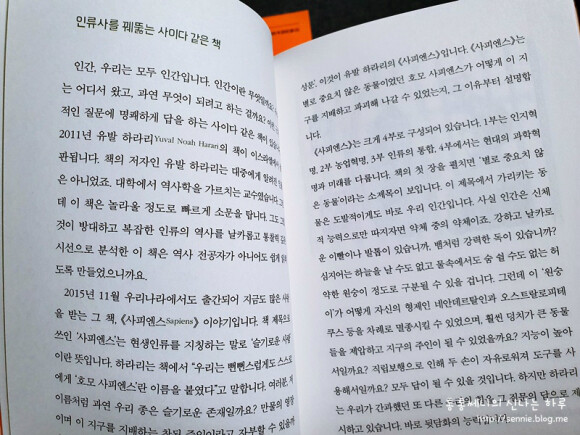 인류사를 꿰뚫는 사이다 같은 책
인간, 우리는 모두 인간입니다. 인간이란
는 어디서 왔고, 과연 무엇이 되려고 하는 걸까요?
적인 질문에 명쾌하게 답을 하는 사이다 같은 책이
2011년 유발 하라리Yuval Noah Harari의 책이
판됩니다. 책의 저자인 유발 하라리는 대중에게
은 아니었죠. 대학에서 역사학을 가르치는 교수였습니다. 그
데 이 책은 놀라울 정도로 빠르게 소문을 탑니다. 그도
것이 방대하고 복잡한 인류의 역사를 날카롭고 통찰력
시선으로 분석한 이 책은 역사 전공자가 아니어도 쉽게
도록 만들었으니까요.
2015년 11월 우리나라에서도 출간되어 지금도 많은
을 받는 그 책, 《사피엔스Sapiens》 이야기입니다. 책 제목으로
쓰인 '사피엔스'는 현생인류를 지칭하는 말로 '슬기로운
이란 뜻입니다. 하라리는 책에서 "우리는 뻔뻔스럽게도 스스로
에게 '호모 사피엔스'란 이름을 붙였다"고 말합니다. 여러분,
이름처럼 과연 우리 종은 슬기로운 존재일까요? 만물의 영장
이며 이 지구를 지배하는 참된 주인이라고 자부할 수 있을까
상분'. 이것이 유발 하라리의 《사피엔스》입니다. 《사피엔스》는
별로 중요치 않은 동물이었던 호모 사피엔스가 어떻게 이 지
구를 지배하고 파괴해 나갈 수 있었는지, 그 이유부터 설명합
니다.
《사피엔스》는 크게 4부로 구성되어 있습니다. 1부는 인지혁
명, 2부 농업혁명, 3부 인류의 통합, 4부에서는 현대의 과학혁
명과 미래를 다룹니다. 책의 첫 장을 펼치면 '별로 중요치 않
은 동물'이라는 소제목이 보입니다. 이 제목에서 가리키는 동
물은 도발적이게도 바로 우리 인간입니다. 사실 인간은 신체
적 능력으로만 따지자면 약체 중의 약체이죠. 강하고 날카로
운 이빨이나 발톱이 있습니까, 뱀처럼 강력한 독이 있습니까?
심지어는 하늘을 날 수도 없고 물속에서도 숨 쉴 수도 없는 허
약한 원숭이 정도로 구분될 수 있을 겁니다. 그런데 이 '원숭
이'가 어떻게 자신의 형제인 네안데르탈인과 오스트랄로피테
쿠스 등을 차례로 멸종시킬 수 있었으며, 훨씬 덩치가 큰 동물
들을 제압하고 지구의 주인이 될 수 있었을까요? 지능이 높아
서일까요? 직립보행으로 인해 두 손이 자유로워져 도구를 사
용해서일까요? 모두 답이 될 수 있을 것입니다. 하지만 하라리
는 우리가 간과했던 또 다른
동동쎄니의 신나는 하루
http://sennie.blog.me